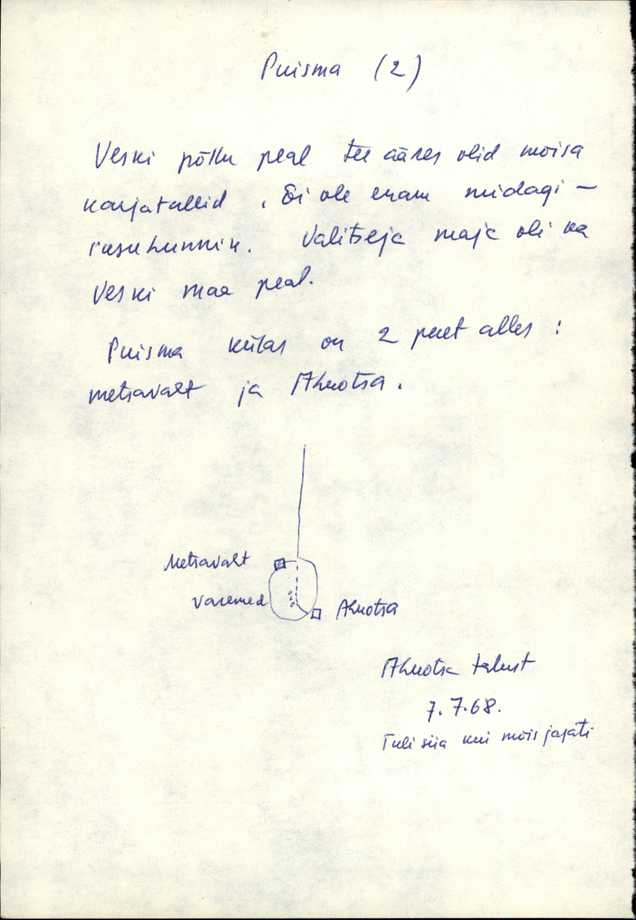 Puisma (2)
Veski põllu peal tee ääres olid mõisa
karjatallid. Ei ole enam midagi –
rusuhunnik. Valitseja maja oli ka
Veski maa peal.
Puisma külas on 2 peret alles:
metsavaht ja Ahuotsa.
Metsavaht
varemed
Ahuotsa
Ahuotsa talust
7.7.68.
Tuli siia kui mõis jagati